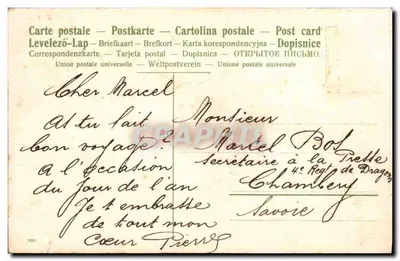 Carte postale – Postkarte – Cartolina postale – Post card
Levelező-Lap – Briefkaart – Brefkort – Karta korespondencyjna – Dopisnice
Correspondenzkarte – Tarjeta postal – Dopisnica – ОТКРЫТОЕ ПИСЬМО.
Union postale universelle – Weltpostverein – Unione postale universale
Cher Marcel
As tu fait
bon voyage ?
A l'occasion
du jour de l'an
Je t'embrasse
de tout mon
Cœur Pierre
Monsieur
Marcel Bos
secrétaire à la Presse
4e Regt de Dragons
Chambéry
Savoie